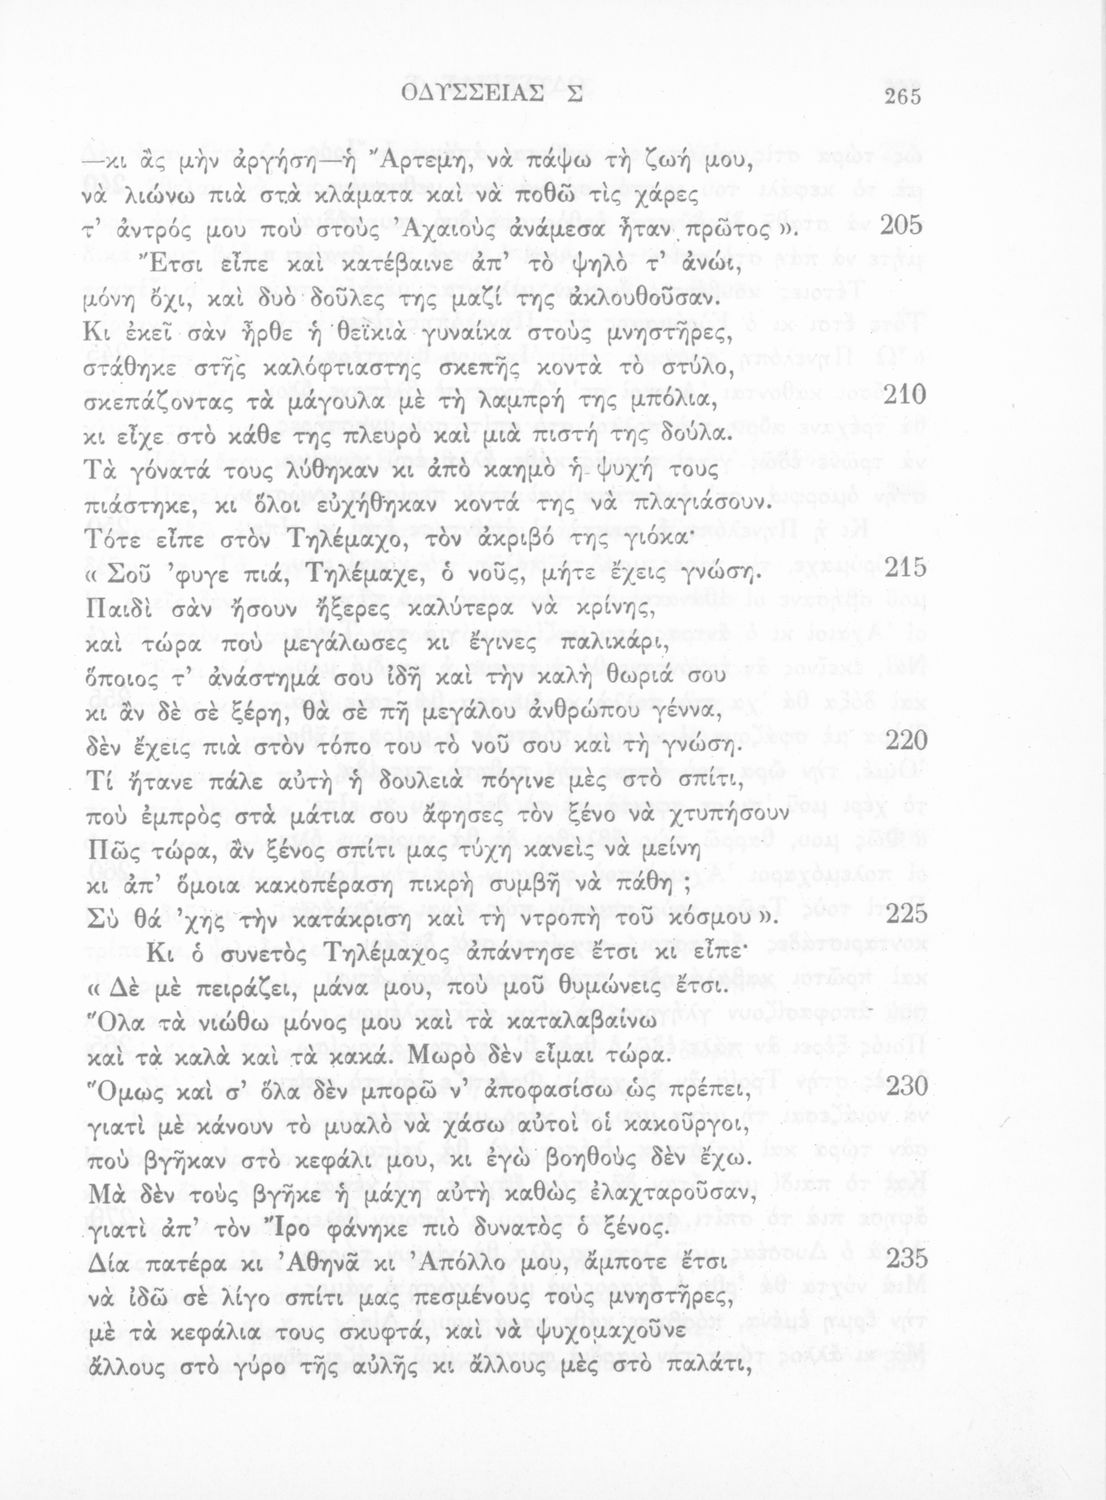 ΟΔΥΣΣΕΙΑΣ Σ 265
—κι ἂς μὴν ἀργήση—ἡ Ἄρτεμη, νὰ πάψω τὴ ζωή μου,
νὰ λιώνω πιὰ στὰ κλάματα καὶ νὰ ποθῶ τὶς χάρες
τ’ ἀντρός μου ποὺ στοὺς Ἀχαιοὺς ἀνάμεσα ἦταν πρῶτος ». 205
Ἔτσι εἶπε καὶ κατέβαινε ἀπ’ τὸ ψηλὸ τ’ ἀνώι,
μόνη ὄχι, καὶ δυὸ δοῦλες της μαζί της ἀκλουθοῦσαν.
Κι ἐκεῖ σὰν ἦρθε ἡ θεϊκιὰ γυναίκα στοὺς μνηστῆρες,
στάθηκε στῆς καλόφτιαστης σκεπῆς κοντὰ τὸ στύλο,
σκεπάζοντας τὰ μάγουλα μὲ τὴ λαμπρή της μπόλια, 210
κι εἶχε στὸ κάθε της πλευρὸ καὶ μιὰ πιστή της δούλα.
Τὰ γόνατά τους λύθηκαν κι ἀπὸ καημὸ ἡ ψυχή τους
πιάστηκε, κι ὅλοι εὐχήθηκαν κοντά της νὰ πλαγιάσουν.
Τότε εἶπε στὸν Τηλέμαχο, τὸν ἀκριβό της γιόκα·
« Σοῦ ’φυγε πιά, Τηλέμαχε, ὁ νοῦς, μήτε ἔχεις γνώση. 215
Παιδὶ σὰν ἤσουν ἤξερες καλύτερα νὰ κρίνης,
καὶ τώρα ποὺ μεγάλωσες κι ἔγινες παλικάρι,
ὅποιος τ’ ἀνάστημά σου ἰδῆ καὶ τὴν καλὴ θωριά σου
κι ἂν δὲ σὲ ξέρη, θὰ σὲ πῆ μεγάλου ἀνθρώπου γέννα,
δὲν ἔχεις πιὰ στὸν τόπο του τὸ νοῦ σου καὶ τὴ γνώση. 220
Τί ἤτανε πάλε αὐτὴ ἡ δουλειὰ πόγινε μὲς στὸ σπίτι,
ποὺ ἐμπρὸς στὰ μάτια σου ἄφησες τὸν ξένο νὰ χτυπήσουν
Πῶς τώρα, ἂν ξένος σπίτι μας τύχη κανεὶς νὰ μείνη
κι ἀπ’ ὅμοια κακοπέραση πικρὴ συμβῆ νὰ πάθη ;
Σὺ θά ’χης τὴν κατάκριση καὶ τὴ ντροπὴ τοῦ κόσμου ». 225
Κι ὁ συνετὸς Τηλέμαχος ἀπάντησε ἔτσι κι εἶπε·
« Δὲ μὲ πειράζει, μάνα μου, ποὺ μοῦ θυμώνεις ἔτσι.
Ὅλα τὰ νιώθω μόνος μου καὶ τὰ καταλαβαίνω
καὶ τὰ καλὰ καὶ τὰ κακά. Μωρὸ δὲν εἶμαι τώρα.
Ὅμως καὶ σ’ ὅλα δὲν μπορῶ ν’ ἀποφασίσω ὡς πρέπει, 230
γιατὶ μὲ κάνουν τὸ μυαλὸ νὰ χάσω αὐτοὶ οἱ κακοῦργοι,
ποὺ βγῆκαν στὸ κεφάλι μου, κι ἐγὼ βοηθοὺς δὲν ἔχω.
Μὰ δὲν τοὺς βγῆκε ἡ μάχη αὐτὴ καθὼς ἐλαχταροῦσαν,
γιατὶ ἀπ’ τὸν Ἴρο φάνηκε πιὸ δυνατὸς ὁ ξένος.
Δία πατέρα κι Ἀθηνὰ κι Ἀπόλλο μου, ἄμποτε ἔτσι 235
νὰ ἰδῶ σὲ λίγο σπίτι μας πεσμένους τοὺς μνηστῆρες,
μὲ τὰ κεφάλια τους σκυφτά, καὶ νὰ ψυχομαχοῦνε
ἄλλους στὸ γύρο τῆς αὐλῆς κι ἄλλους μὲς στὸ παλάτι,